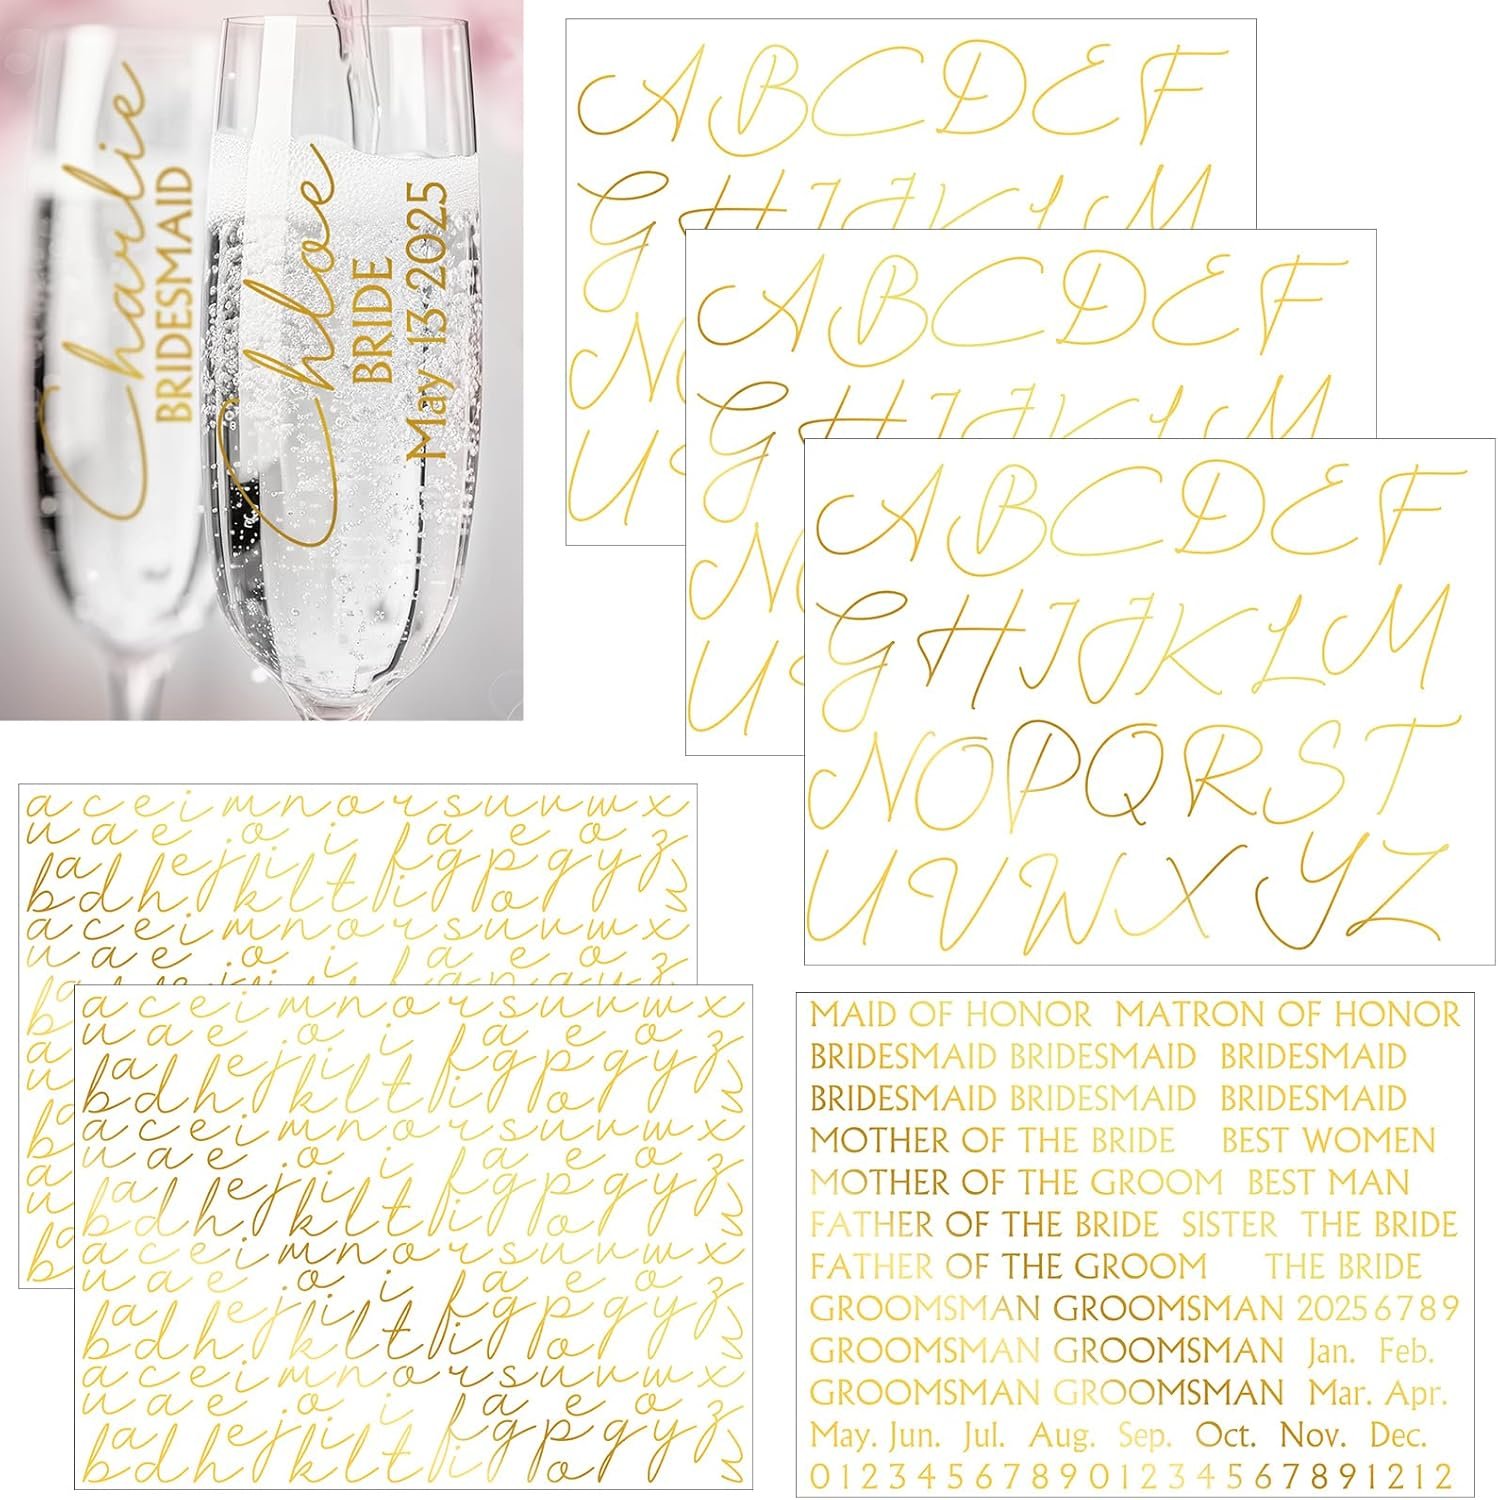 Charlie
BRIDESMAID
Chloe
BRIDE
May 13 2025
A B C D E F
G H I J K L M
N
U
A B C D E F
G H I J K L M
N
U
A B C D E F
G H I J K L M
N O P Q R S T
U V W X Y Z
a c e i m n o r s u v w x
u a e o i a e o
a e j i f g p q y z
b d h k l t i o
a c e i m n o r s u v w x
u a e o i a e o
a c e i m n o r s u v w x
u a e o i a e o
a e j i f g p q y z
b d h k l t i o
a c e i m n o r s u v w x
u a e o i a e o
a e j i f g p q y z
b d h k l t i o
a c e i m n o r s u v w x
u a e o i a e o
a e j i f g p q y z
b d h k l t i o
a c e i m n o r s u v w x
u a e o i a e o
a e j i f g p q y z
b d h k l t i o
MAID OF HONOR MATRON OF HONOR
BRIDESMAID BRIDESMAID BRIDESMAID
BRIDESMAID BRIDESMAID BRIDESMAID
MOTHER OF THE BRIDE BEST WOMEN
MOTHER OF THE GROOM BEST MAN
FATHER OF THE BRIDE SISTER THE BRIDE
FATHER OF THE GROOM THE BRIDE
GROOMSMAN GROOMSMAN 20256789
GROOMSMAN GROOMSMAN Jan. Feb.
GROOMSMAN GROOMSMAN Mar. Apr.
May. Jun. Jul. Aug. Sep. Oct. Nov. Dec.
0 1 2 3 4 5 6 7 8 9 0 1 2 3 4 5 6 7 8 9 1 2 1 2